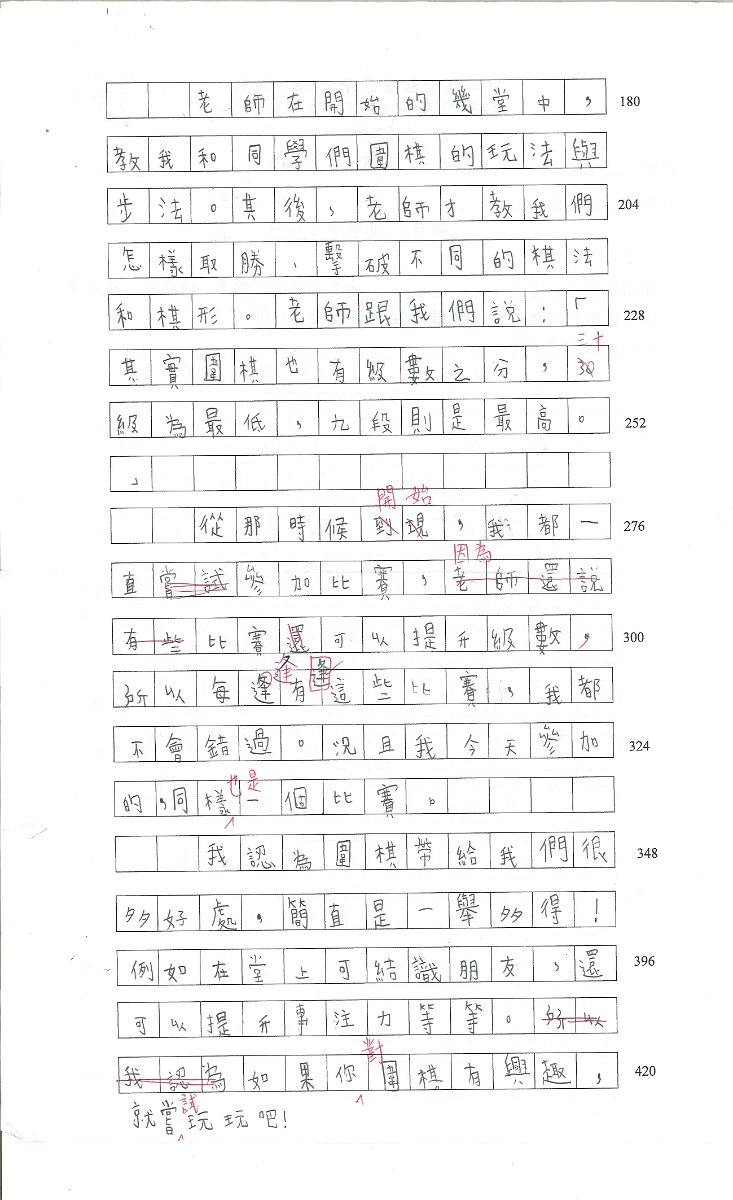 老師在開始的幾堂中，ㅤ180
教我和同學們圍棋的玩法與
步法。其後，老師才教我們 204
怎樣取勝、擊破不同的棋法
和棋形。老師跟我們說：「 228
三十
其實圍棋也有級數之分，30
級為最低，九段則是最高。 252
」
開始
從那時候到現，我都一 276
因為
直嘗試參加比賽，老師還說
有些比賽還可以提升級數， 300
逢 逢
所以每逢有這些比賽，我都
不會錯過。況且我今天參加 324
也是
的，同樣一個比賽。
我認為圍棋帶給我們很 348
多好處，簡直是一舉多得！
例如在堂上可結識朋友，還 396
可以提升專注力等等。所以
對
我認為如果你圍棋有興趣， 420
試
就嘗玩玩吧！